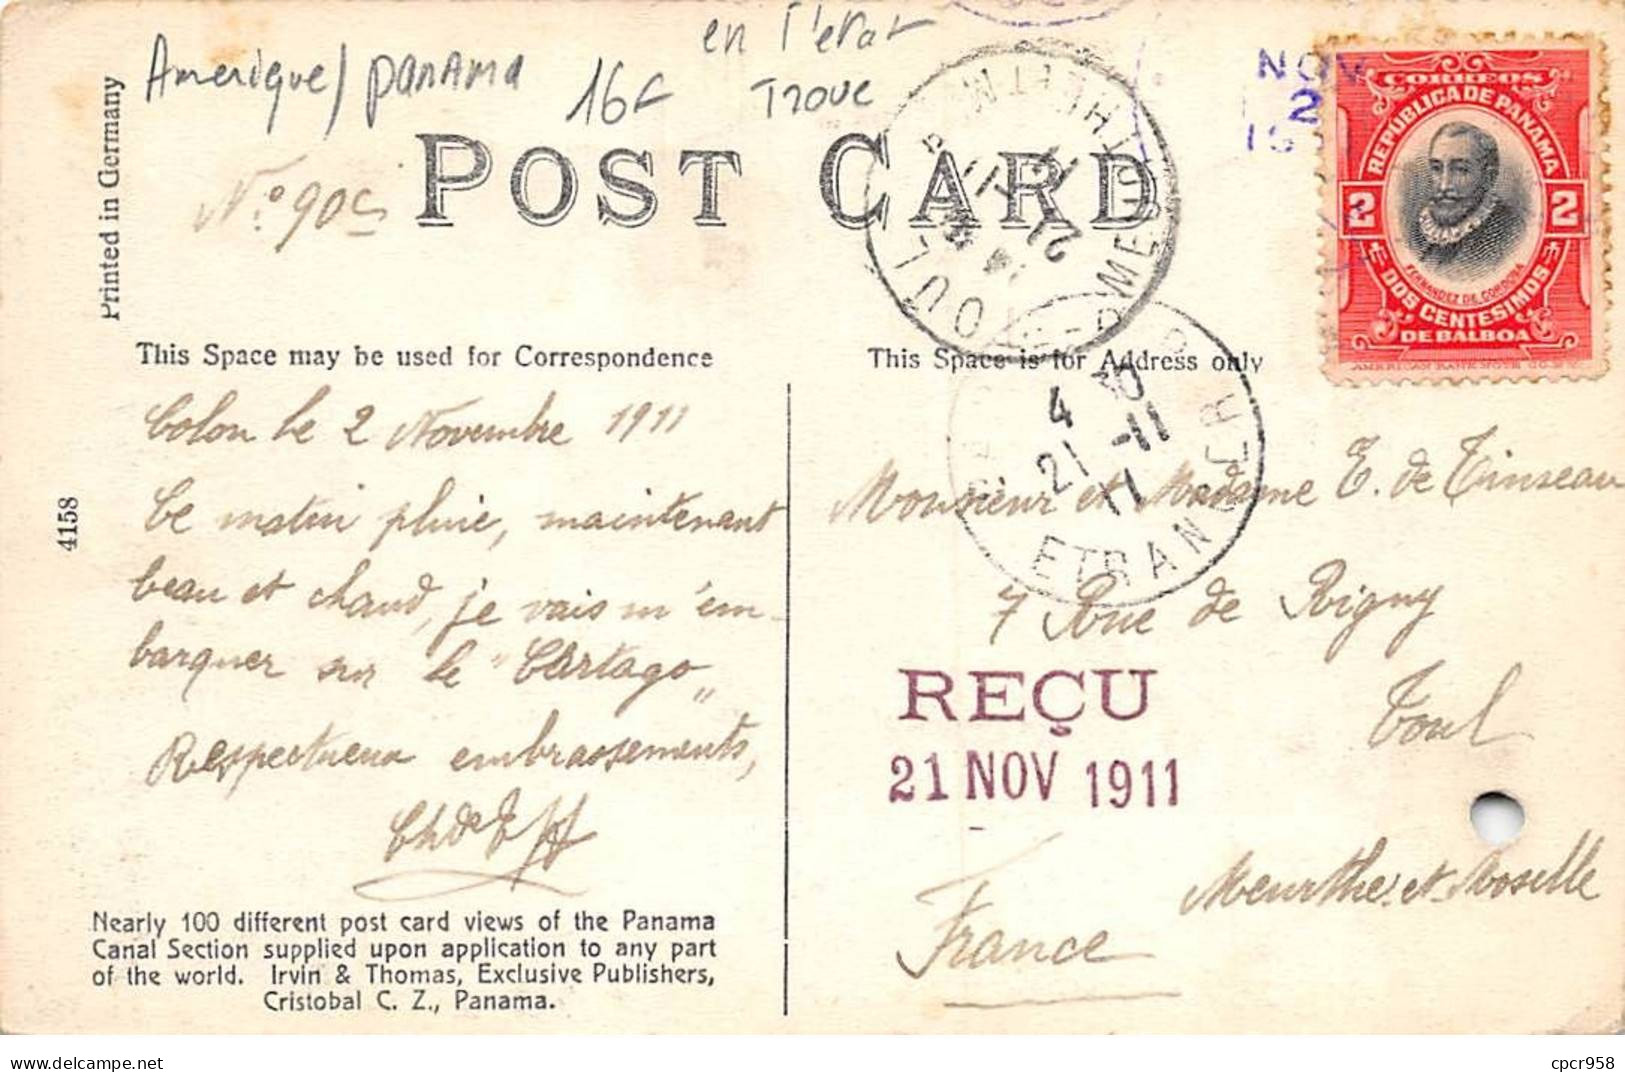 Amerique / panama
16€
en l'etat
Troue
NOV
2
N.º 90
POST CARD
CORREOS
REPUBLICA DE PANAMA
2 2
FERNANDEZ DE CORDOBA
DOS CENTESIMOS
DE BALBOA
AMERICAN BANK NOTE CO. N.Y.
Printed in Germany
4158
TOUL
MEURTHE-ET-M
This Space may be used for Correspondence
Colon le 2 Novembre 1911
Ce matin pluie, maintenant
beau et chaud, je vais m'em-
barquer sur le "Cartago"
Respectueux embrassements,
Nearly 100 different post card views of the Panama
Canal Section supplied upon application to any part
of the world. Irvin & Thomas, Exclusive Publishers,
Cristobal C. Z., Panama.
This Space is for Address only
4 30
21 -11
11
ETRANGER
Monsieur et Madame E. de Tinseau
7 Rue de Rigny
Toul
REÇU
21 NOV 1911
Meurthe et Moselle
France
cpcr958